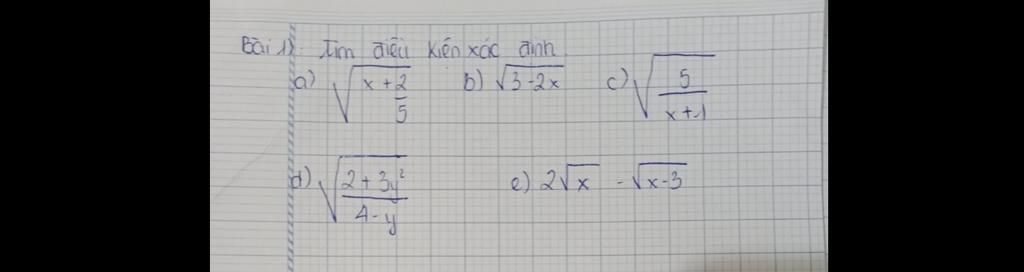 Bài 1). Tìm điều kiện xác định
a) √(x + 2/5) b) √(3-2x) c) √(5/(x+1))
d) √((2+3y²)/(4-y)) e) 2√x - √(x-3)